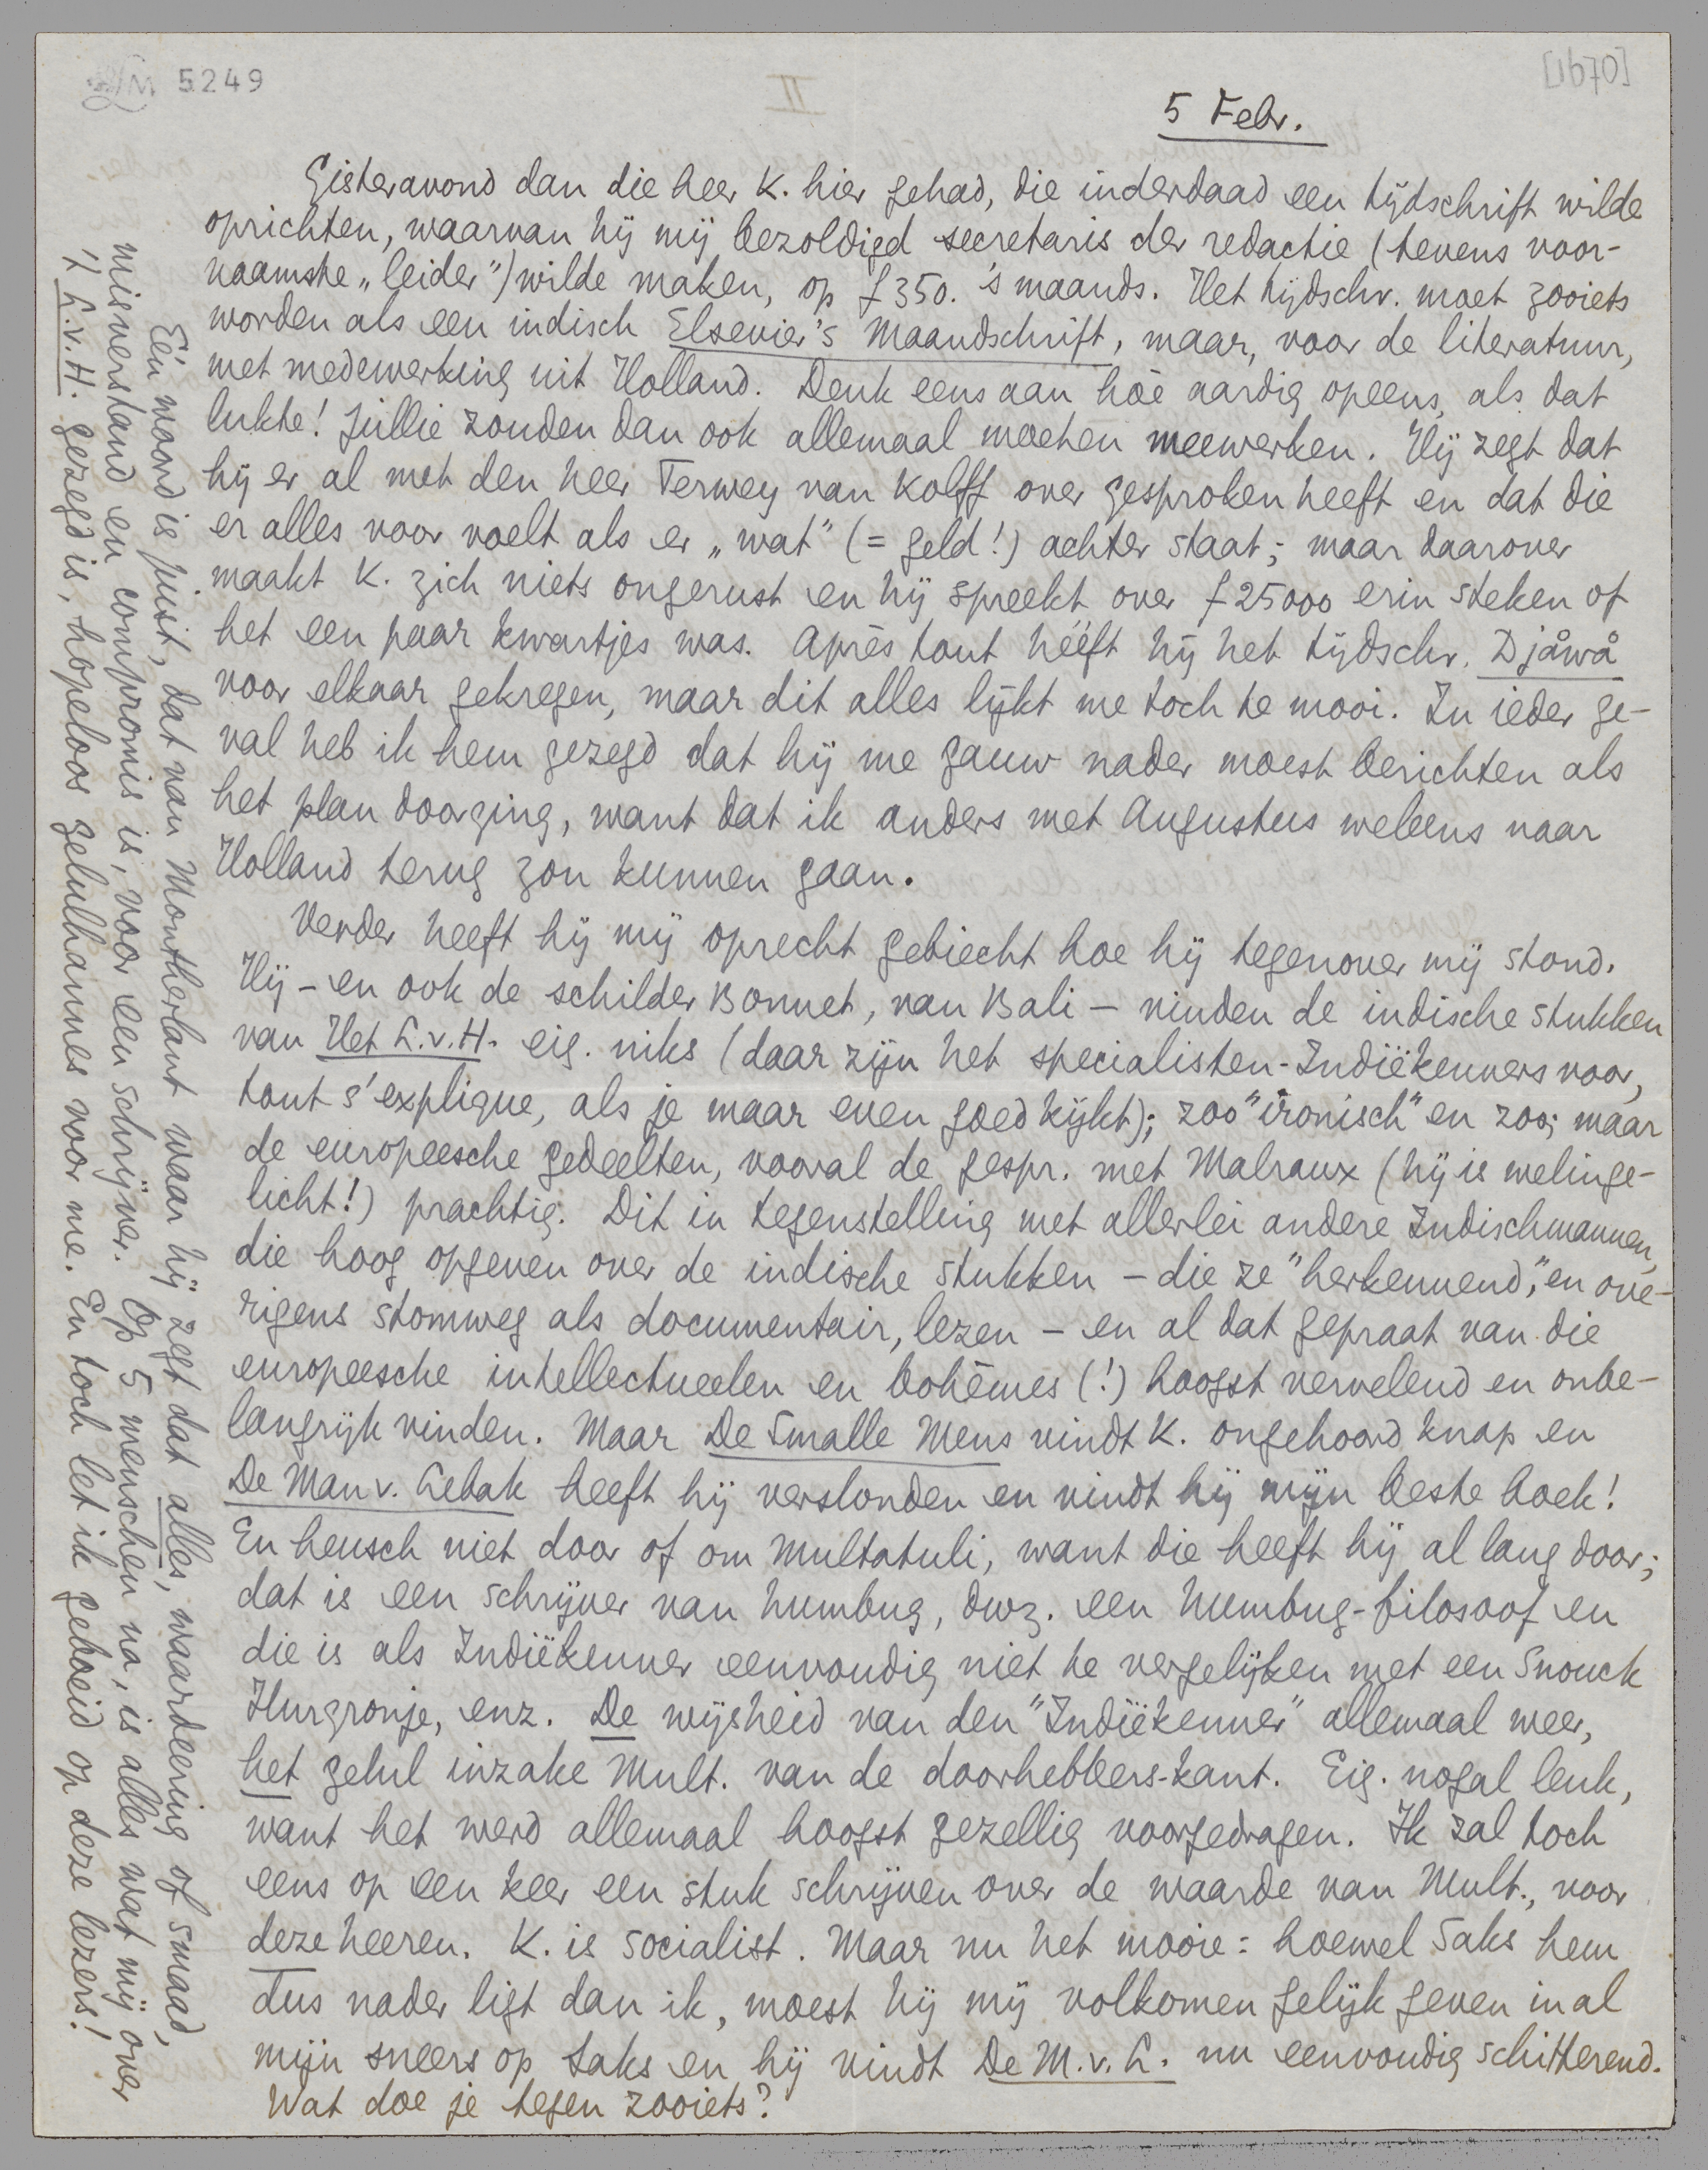 LM 5249
II
[1670]
5 Febr.
Gisteravond dan die heer K. hier gehad, die inderdaad een tijdschrift wilde
oprichten, waarvan hij mij bezoldigd secretaris der redactie (tevens voor-
naamste „leider") wilde maken, op f 350. 's maands. Het tijdschr. moet zooiets
worden als een indisch Elsevier's Maandschrift, maar, voor de literatuur,
met medewerking uit Holland. Denk eens aan hòe aardig opeens, als dat
lukte! Jullie zouden dan ook allemaal moeten meewerken. Hij zegt dat
hij er al met den heer Terwey van Kolff over gesproken heeft en dat die
er alles voor voelt als er „wat" (= geld!) achter staat; maar daarover
maakt K. zich niets ongerust en hij spreekt over f 25000 erin steken of
het een paar kwartjes was. Après tout hééft hij het tijdschr. Djåwå
voor elkaar gekregen, maar dit alles lijkt me toch te mooi. In ieder ge-
val heb ik hem gezegd dat hij me gauw nader moest berichten als
het plan doorging, want dat ik anders met Augustus weleens naar
Holland terug zou kunnen gaan.
Verder heeft hij mij oprecht gebiecht hoe hij tegenover mij stond.
Hij – en ook de schilder Bonnet, van Bali – vinden de indische stukken
van Het L.v.H. eig. niks (daar zijn het specialisten-Indiëkenners voor,
tout s'explique, als je maar even goed kijkt); zoo "ironisch" en zoo; maar
de europeesche gedeelten, vooral de gespr. met Malraux (hij is welinge-
licht!) prachtig. Dit in tegenstelling met allerlei andere Indischmannen,
die hoog opgeven over de indische stukken – die ze "herkennend", en ove-
rigens stomweg als documentair, lezen – en al dat gepraat van die
europeesche intellectueelen en bohèmes (!) hoogst vervelend en onbe-
langrijk vinden. Maar De Smalle Mens vindt K. ongehoord knap en
De Man v. Lebak heeft hij verslonden en vindt hij mijn beste boek!
En heusch niet door of om Multatuli, want die heeft hij al lang door;
dat is een schrijver van humbug, dwz. een humbug-filosoof en
die is als Indiëkenner eenvoudig niet te vergelijken met een Snouck
Hurgronje, enz. De wijsheid van den "Indiëkenner" allemaal weer,
het gelul inzake Mult. van de doorhebbers-kant. Eig. nogal leuk,
want het werd allemaal hoogst gezellig voorgedragen. Ik zal toch
eens op een keer een stuk schrijven over de waarde van Mult., voor
deze heeren. K. is socialist. Maar nu het mooie: hoewel Saks hem
dus nader ligt dan ik, moest hij mij volkomen gelijk geven in al
mijn sneers op Saks en hij vindt De M.v.L. nu eenvoudig schitterend.
Wat doe je tegen zooiets?
Eén woord is juist, dat van Montherlant waar hij zegt dat alles, waardeering of smaad,
misverstand en compromis is, voor een schrijver. Op 5 menschen na, is alles wat mij over
't L.v.H. gezegd is, hopeloos gelulhannes voor me. En toch let ik geboeid op deze lezers!